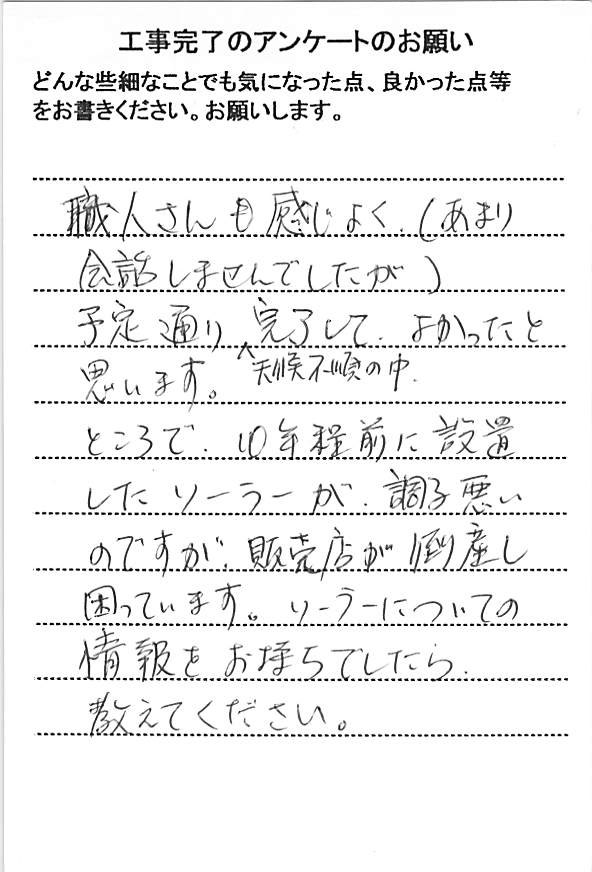 工事完了のアンケートのお願い
どんな些細なことでも気になった点、良かった点等
をお書きください。お願いします。
職人さんも感じよく、(あまり
会話しませんでしたが)
予定通り完了して、よかったと
天候不順の中、
思います。
ところで、10年程前に設置
したソーラーが、調子悪い
のですが、販売店が倒産し
困っています。ソーラーについての
情報をお持ちでしたら、
教えてください。